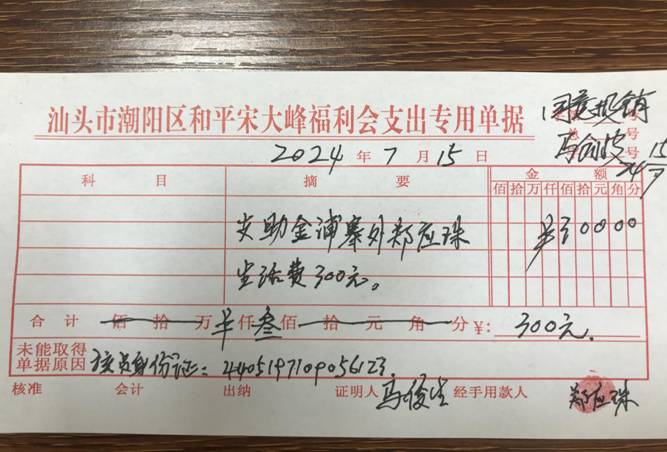 汕头市潮阳区和平宋大峰福利会支出专用单据
同意报销
号
号
号
2024年7月15日
科目 摘要 金额
佰拾万仟佰拾元角分
支助金浦寨外郑应珠 ¥30000
生活费300元。
合计 佰拾万半仟叁佰拾元角分¥: 300元.
未能取得
单据原因
核准 会计 出纳 证明人 马俊生 经手用款人 郑应珠